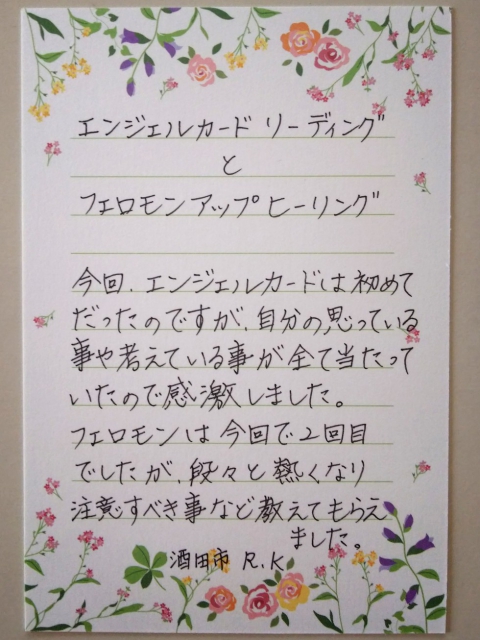 エンジェルカード リーディング
と
フェロモンアップヒーリング
今回、エンジェルカードは初めて
だったのですが、自分の思っている
事や考えている事が全て当たって
いたので感激しました。
フェロモンは今回で2回目
でしたが、段々と熱くなり
注意すべき事など教えてもらえ
ました。
酒田市 R.K